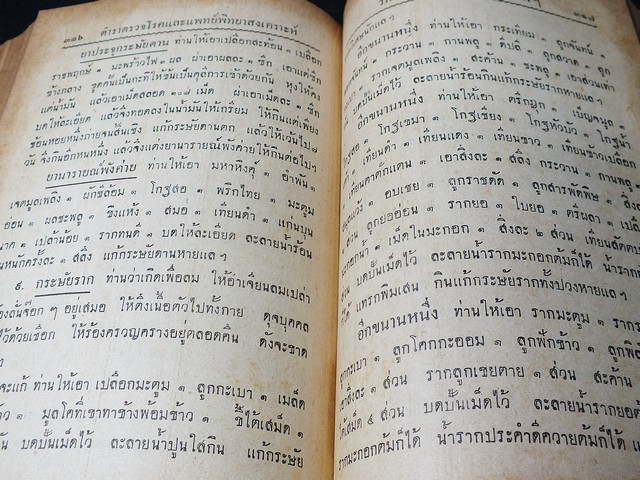 ๓๑๖ ตำราตรวจโรคและแพทย์พิทยาสงเคราะห์
ยาประจุกระษัยดาน ท่านให้เอาเปลือกสะท้อน ๑ เปลือก
ราชพฤกษ์ ๑ มะพร้าวไฟ ๑ ผล ผ่าเอาผลละ ๑ ซีก เอาแต่ซีก
ข้างกลาง ขูดคั้นเป็นกะทิให้ข้นเป็นจุติการเข้าด้วยกัน หุงให้คง
แต่น้ำมัน แล้วเอาเม็ดสลอด ๑๐๘ เม็ด ผ่าเอาเม็ดละ ๑ ซีก
บดให้ละเอียด แล้วจึงทอดลงในน้ำมันให้เกรียม ให้กินแต่เพียง
ช้อนหอยหนึ่งถ่ายจนสิ้นเชิง แก้กระษัยดานตก แล้วให้เว้นไป ๗
วัน จึงกินอีกหนหนึ่ง แล้วจึงแต่งยานารายณ์พังค่ายให้กินต่อไปฯ
ยานารายณ์พังค่าย ท่านให้เอา มหาหิงคุ์ ๑ อำพัน ๑
เจตมูลเพลิง ๑ ผักชีล้อม ๑ โกฐสอ ๑ พริกไทย ๑ มะตูม
อ่อน ๑ ผลชะพลู ๑ ขิงแห้ง ๑ สมอ ๑ เทียนดำ ๑ แก่นบุน
นาค ๑ เปล้าน้อย ๑ รากทนดี ๑ บดให้ละเอียด ละลายน้ำร้อน
กินหนักครั้งละ ๑ สลึง แก้กระษัยดานหายแล ฯ
๙. กระษัยราก ท่านว่าเกิดเพื่อลม ให้อ้าเจียนลมเปล่า
ร้องลั่นจ๊อก ๆ อยู่เสมอ ให้ตึงเนื้อตัวไปทั้งกาย ดุจบุคคล
ไว้ด้วยเชือก ให้ร้องครวญครางอยู่ตลอดคืน ดังจะขาด
จะแก้ ท่านให้เอา เปลือกมะตูม ๑ ลูกกะเบา ๑ เมล็ด
าว ๑ มูลโคที่เขาทำข้างพ้อมข้าว ๑ ขี้ใต้เสม็ด ๑
บดปั้นเม็ดไว้ ละลายน้ำปูนใสกิน แก้กระษัย
๓๑๗
อีกขนานหนึ่ง ท่านให้เอา กระเทียม ๑ ลูกจันทน์ ๑ ลูก
๑ กระวาน ๑ กานพลู ๑ ดีปลี ๑ ลูกสวาด ๑ ลูก
๑ รากเจตมูลเพลิง ๑ สะค้าน ๑ ชะพลู ๑ เอาส่วนเท่า
บดปั้นเม็ดไว้ ละลายน้ำร้อนกินแก้กระษัยรากหายแล ฯ
อีกขนานหนึ่ง ท่านให้เอา ตรีกฏุก ๑ เบ็ญจมูล ๑
โกฐสอ ๑ โกฐเขมา ๑ โกฐเชียง ๑ โกฐหัวบัว ๑ โกฐน้ำ
๑ เทียนดำ ๑ เทียนแดง ๑ เทียนขาว ๑ เทียนข้าวเปลือก
เทียนตาตั๊กแตน ๑ เอาสิ่งละ ๑ สลึง กระวาน ๑ กานพลู
๑ อบเชย ๑ ลูกราชดัด ๑ ลูกสารพัดพิษ ๑
ส่วน ลูกย่อย่อน ๑ รากยอ ๑ ใบยอ ๑ ตรีผลา ๑
๑ เม็ดในมะกอก ๑ สิ่งละ ๒ ส่วน เทียนสัตตบุษ
บดปั้นเม็ดไว้ ละลายน้ำรากมะกอกต้มก็ได้ น้ำราก
ได้ แทรกพิมเสน กินแก้กระษัยรากทั้งปวงหายแล ฯ
อีกขนานหนึ่ง ท่านให้เอา รากมะตูม ๑
ลูกกะเบา ๑ ลูกโคกกะออม ๑ ลูกฟักข้าว ๑
เอาสิ่งละ ๑ ส่วน รากลูกเขยตาย ๑ ส่วน สะค้าน
ใต้เสม็ด ๕ ส่วน บดปั้นเม็ดไว้ ละลายน้ำรากยอต้ม
รากมะกอกต้มก็ได้ น้ำรากประคำดีควายต้มก็ได้